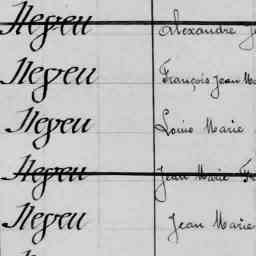 Neveu Alexandre
Neveu François Jean
Neveu Louis Marie
Neveu Jean Marie
Neveu Jean Marie